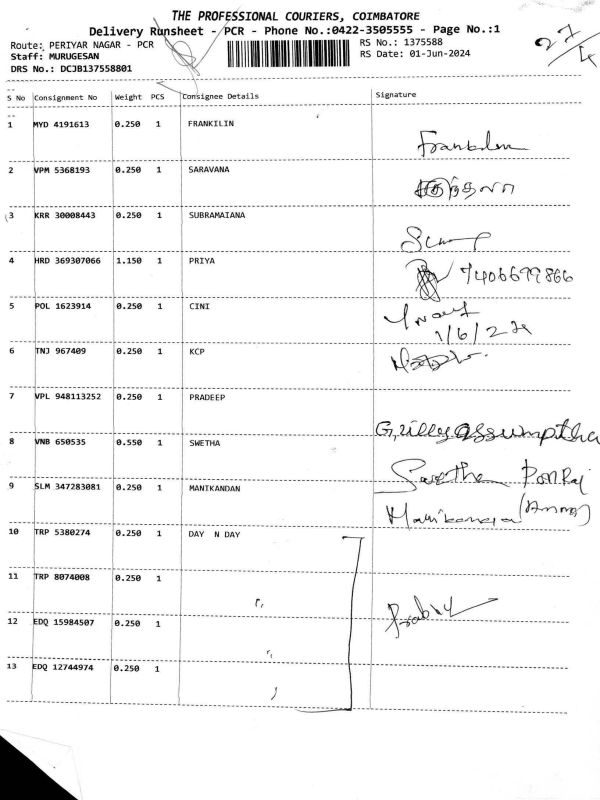 THE PROFESSIONAL COURIERS, COIMBATORE
Delivery Runsheet - PCR - Phone No.:0422-3505555 - Page No.:1
Route: PERIYAR NAGAR - PCR RS No.: 1375588
Staff: MURUGESAN RS Date: 01-Jun-2024
DRS No.: DCJB137558801
S No Consignment No Weight PCS Consignee Details Signature
1 MYD 4191613 0.250 1 FRANKILIN
Franklin
2 VPM 5368193 0.250 1 SARAVANA
3 KRR 30008443 0.250 1 SUBRAMAIANA
4 HRD 369307066 1.150 1 PRIYA
7406699866
5 POL 1623914 0.250 1 CINI
1/6/24
6 TNJ 967409 0.250 1 KCP
7 VPL 948113252 0.250 1 PRADEEP
assumptha
8 VNB 650535 0.550 1 SWETHA
Swetha PonRaj
9 SLM 347283081 0.250 1 MANIKANDAN
10 TRP 5380274 0.250 1 DAY N DAY
11 TRP 8074008 0.250 1
12 EDQ 15984507 0.250 1
13 EDQ 12744974 0.250 1